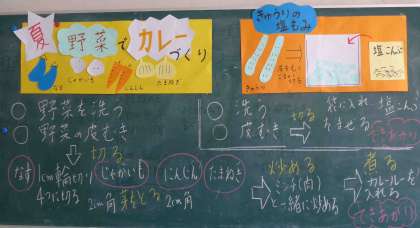 夏野菜でカレーづくり
なす
じゃがいも
にんじん
たまねぎ
○ 野菜を洗う
○ 野菜の皮むき
切る
なす
1cm輪切り
4つに切る
じゃがいも
2cm角
芽をとる
にんじん
2cm角
たまねぎ
炒める
ミンチ(肉)
と一緒に炒める
煮る
カレールーを
入れる
できあがり
きゅうりの
塩もみ
きゅうり
塩こんぶ
○ 洗う
○ 皮むき
切る
袋に入れ 塩こんぶ